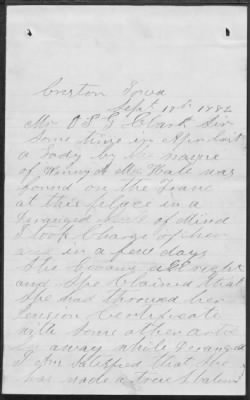 Creston Iowa
Sept 18th 1882
Mr O P G Clark Sir
Some time in Apr last
a Lady by the name
of Mrs Hale was
found on the Train
at this place in a
Deranged State of Mind
I took Charge of her
and in a few days
She became all right
and She Claimed that
She had throwed her
Pension Certificate
with Some other artic
les away while Deranged
I Am Satisfied that She
has made a true Statem